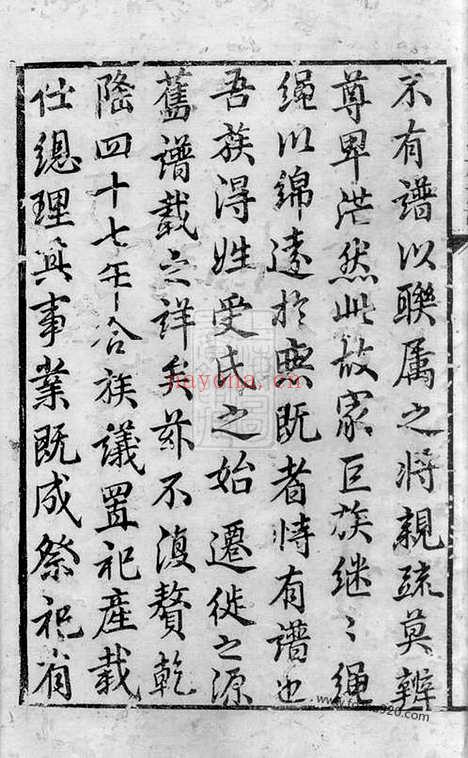 不有譜以聯属之将親疏莫辨
尊卑茫然此故家巨族継〻繩
繩以綿遠於無既者恃有譜也
吾族得姓受氏之始遷徙之源
舊譜載之詳矣茲不復贅乾
隆四十七年合族議置祀產載
仕總理其事業既成祭祀有
nayona.cn